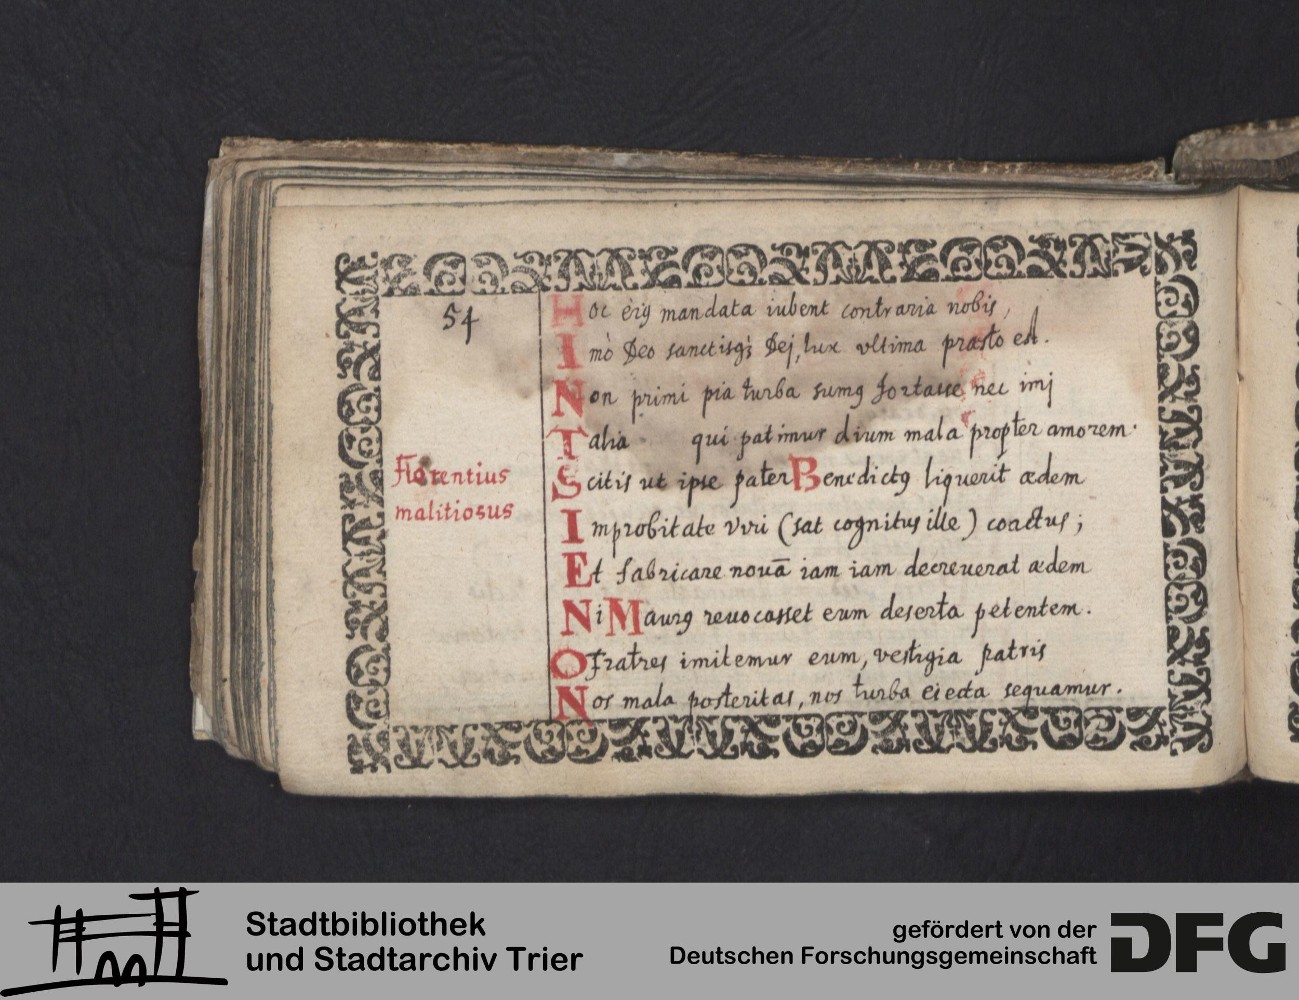 54
Hoc eiꝰ mandata iubent contraria nobis,
Imò Deo sanctisqꝫ Dej, lux vltima præsto est.
Non primi pia turba sumꝰ fortasse nec imj
Talia qui patimur dium mala propter amorem.
Florentius
malitiosus
Scitis ut ipse pater Benedictꝰ liquerit ædem
Improbitate viri (sat cognitus ille) coactus;
Et fabricare nouā iam iam decreuerat ædem
Ni Maurꝰ reuocasset eum deserta petentem.
O fratres imitemur eum, vestigia patris
Nos mala posteritas, nos turba eiecta sequamur.
Stadtbibliothek
und Stadtarchiv Trier
gefördert von der
Deutschen Forschungsgemeinschaft
DFG